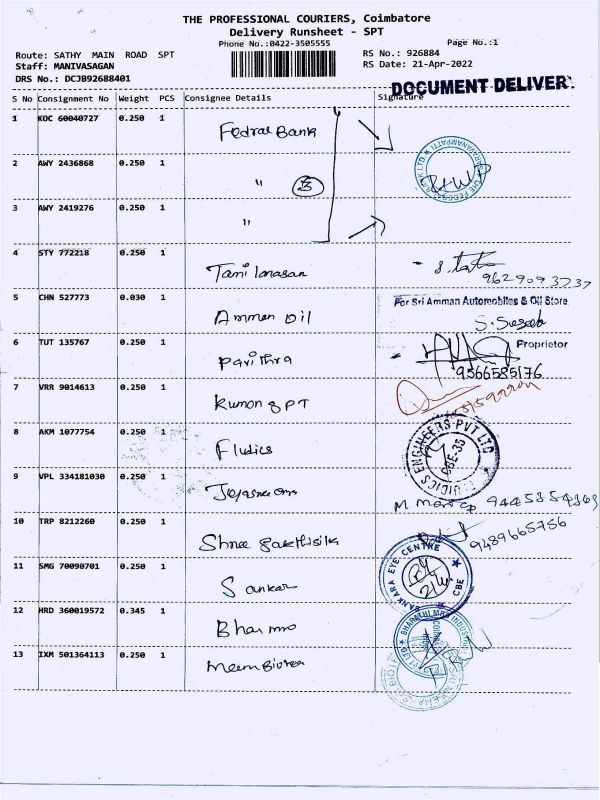 THE PROFESSIONAL COURIERS, Coimbatore
Delivery Runsheet - SPT
Phone No.:0422-3505555
Page No.:1
Route: SATHY MAIN ROAD SPT
RS No.: 926884
Staff: MANIVASAGAN
RS Date: 21-Apr-2022
DRS No.: DCJB92688401
DOCUMENT DELIVER
S No Consignment No Weight PCS Consignee Details Signature
1 KOC 60040727 0.250 1 Fedral Bank
2 AWY 2436868 0.250 1 " 3
3 AWY 2419276 0.250 1 "
4 STY 772218 0.250 1 Tamilarasan
9629093737
5 CHN 527773 0.030 1 Amman oil
For Sri Amman Automobiles & Oil Store
Proprietor
6 TUT 135767 0.250 1 Pavithra
9566585176
7 VRR 9014613 0.250 1 Kumon SPT
8 AKM 1077754 0.250 1 Fludics
FLUIDICS ENGINEERS PVT LTD
CBE-35
9 VPL 334181030 0.250 1
10 TRP 8212260 0.250 1 Shree Sakthisilk
9489665756
11 SMG 70090701 0.250 1 Sankar
SANKARA EYE CENTRE
CBE
12 HRD 360019572 0.345 1
13 IXM 501364113 0.250 1